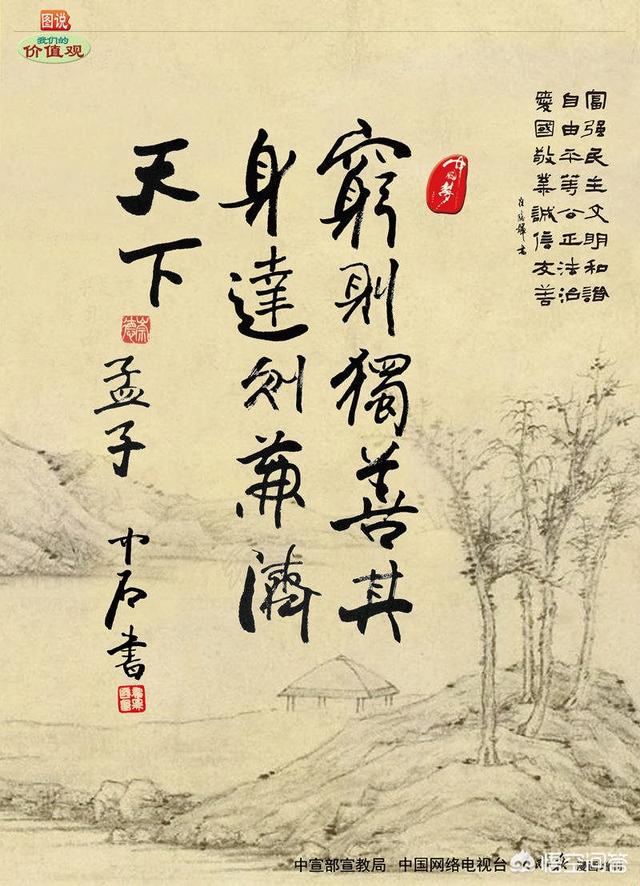 图说
我们的
价值观
富强民主文明和諧
自由平等公正法治
愛國敬業誠信友善
中国梦
窮則獨善其
身達则兼濟
天下
崇德
孟子 中石書
中宣部宣教局 中国网络电视台
悟空问答